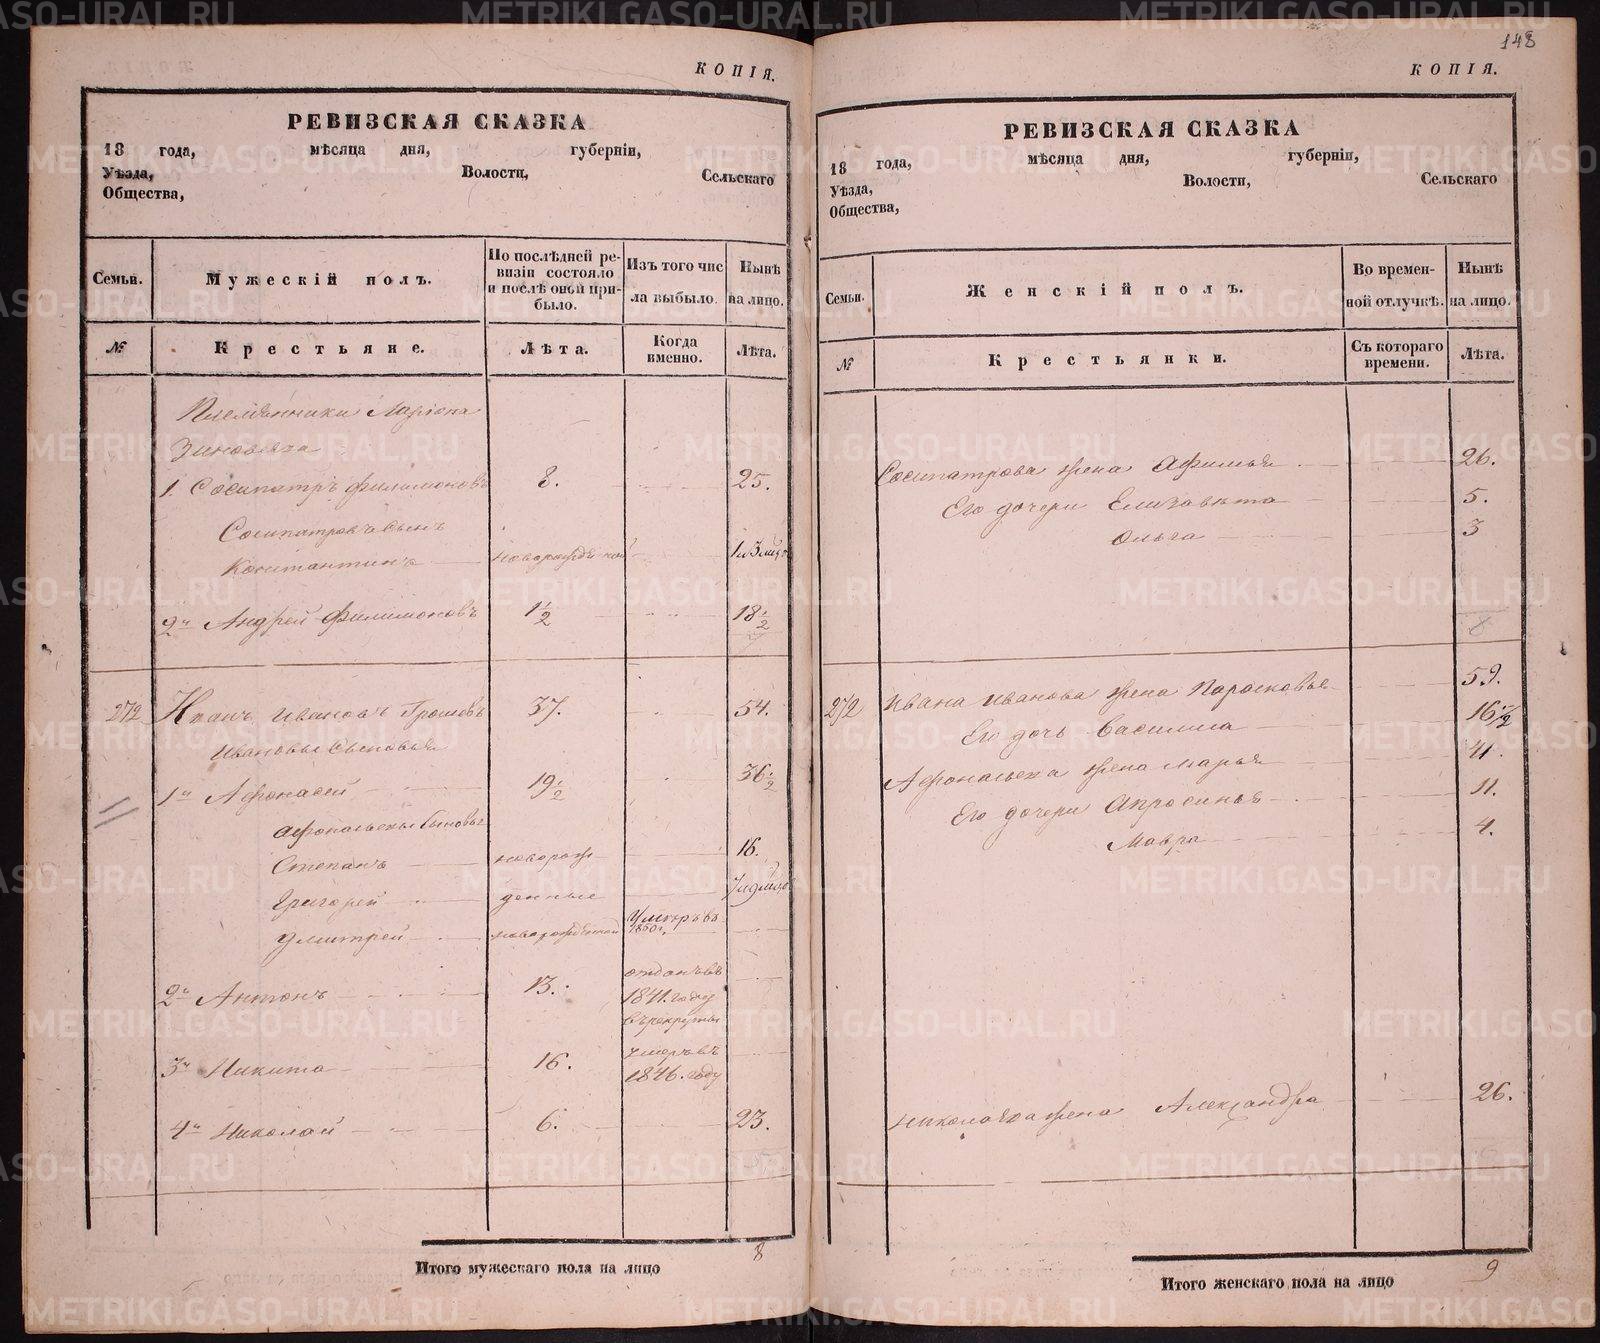 КОПІЯ.
РЕВИЗСКАЯ СКАЗКА
18 года, мѣсяца дня, губерніи,
Уѣзда, Волости, Сельскаго
Общества,
Семьи.
Мужескій полъ.
По послѣдней ревизіи состояло и послѣ оной прибыло.
Изъ того числа выбыло.
Нынѣ на лицо.
№
Крестьяне.
Лѣта.
Когда именно.
Лѣта.
Племѣнники Ларіона
Зиновьева
1. Сосипатръ Филимоновъ 8. 25.
Сосипатровъ Сынъ
Константинъ новорожденной
2й Андрей Филимоновъ 1½ 18½
272 Иванъ Ивановъ Грошовъ 37. 54.
Ивановы Сыновья
1й Афонасей 19½ 36½
Афонасьевы Сыновья
Степанъ новорож 16.
Григорей денные
Дмитрей новорожденной Умеръ въ 1850г.
2й Антонъ 13. отданъ въ
1841. году
въ рекруты
3й Никита 16. умеръ въ
1846. году
4й Николай 6. 23.
5
Итого мужескаго пола на лицо 8
148
КОПІЯ.
РЕВИЗСКАЯ СКАЗКА
18 года, мѣсяца дня, губерніи,
Уѣзда, Волости, Сельскаго
Общества,
Семьи.
Женскій полъ.
Во временной отлучкѣ.
Нынѣ на лицо.
№
Крестьянки.
Съ котораго времени.
Лѣта.
Сосипатрова жена Афимья 26.
Его дочери Елизавѣта 5.
Ольга 3
272 Ивана Иванова жена Парасковья 59.
Его дочь Василиса 16½
Афонасьева жена Марья 41.
Его дочери Апросинья 11.
Мавра 4.
Николаева жена Александра 26.
Итого женскаго пола на лицо 9
METRIKI.GASO-URAL.RU